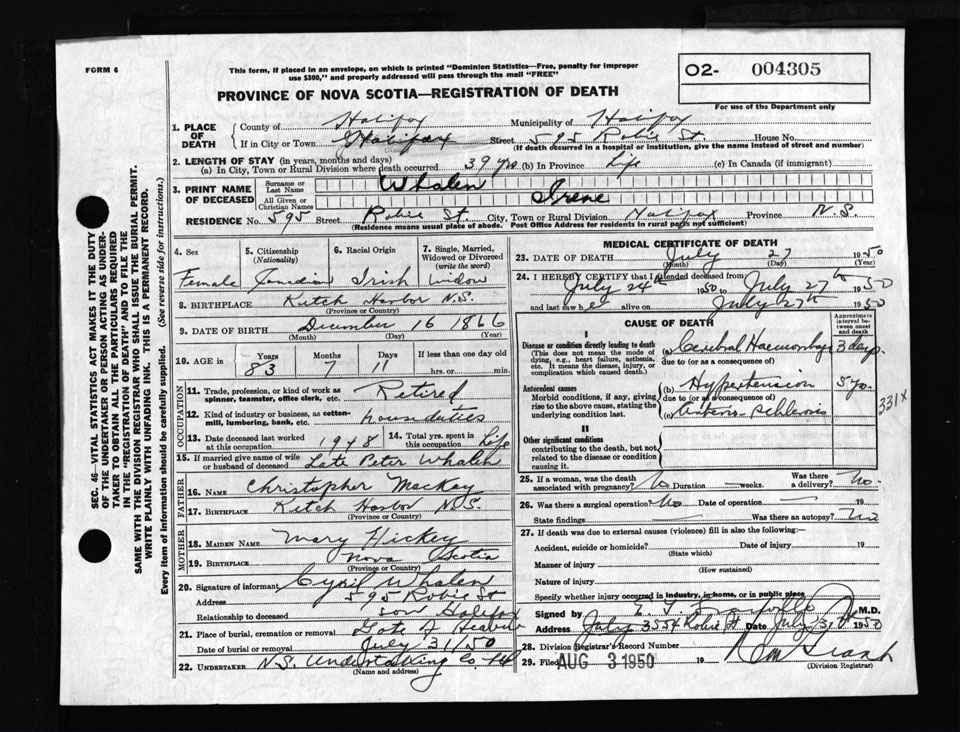 FORM 6
This form, if placed in an envelope, on which is printed "Dominion Statistics—Free, penalty for improper
use $300," and properly addressed will pass through the mail "FREE"
O2- 004305
For use of the Department only
PROVINCE OF NOVA SCOTIA—REGISTRATION OF DEATH
SEC. 46—VITAL STATISTICS ACT MAKES IT THE DUTY
OF THE UNDERTAKER OR PERSON ACTING AS UNDER-
TAKER TO OBTAIN ALL THE PARTICULARS REQUIRED
IN THE "REGISTRATION OF DEATH" AND TO FILE THE
SAME WITH THE DIVISION REGISTRAR WHO SHALL ISSUE THE BURIAL PERMIT.
WRITE PLAINLY WITH UNFADING INK. THIS IS A PERMANENT RECORD.
Every item of information should be carefully supplied. (See reverse side for instructions.)
1. PLACE OF DEATH
County of Halifax Municipality of Halifax
If in City or Town Halifax Street 595 Robie St. House No.
(If death occurred in a hospital or institution, give the name instead of street and number)
2. LENGTH OF STAY (in years, months and days)
(a) In City, Town or Rural Division where death occurred 39 yrs (b) In Province Life (c) In Canada (if immigrant)
3. PRINT NAME OF DECEASED
Surname or Last Name Whalen
All Given or Christian Names Irene
RESIDENCE No. 595 Street Robie St. City, Town or Rural Division Halifax Province N.S.
(Residence means usual place of abode. Post Office Address for residents in rural parts not sufficient)
4. Sex
Female
5. Citizenship (Nationality)
Canadian
6. Racial Origin
Irish
7. Single, Married, Widowed or Divorced (write the word)
Widow
8. BIRTHPLACE Ketch Harbor N.S.
(Province or Country)
9. DATE OF BIRTH December 16 1866
(Month) (Day) (Year)
10. AGE in Years Months Days If less than one day old
83 7 11 hrs. or min.
OCCUPATION
11. Trade, profession, or kind of work as spinner, teamster, office clerk, etc. Retired
12. Kind of industry or business, as cotton-mill, lumbering, bank, etc. houseduties
13. Date deceased last worked at this occupation 1948 14. Total yrs. spent in this occupation Life
15. If married give name of wife or husband of deceased Late Peter Whalen
FATHER
16. NAME Christopher Mackey
17. BIRTHPLACE Ketch Harbor N.S.
(Province or Country)
MOTHER
18. MAIDEN NAME Mary Hickey
19. BIRTHPLACE Nova Scotia
(Province or Country)
20. Signature of informant Cyril Whalen
Address 595 Robie St
Relationship to deceased son Halifax
21. Place of burial, cremation or removal Gate of Heaven
Date of burial or removal July 31/50
22. UNDERTAKER N.S. Undertaking Co Ltd
(Name and address)
MEDICAL CERTIFICATE OF DEATH
23. DATE OF DEATH July 27 1950
(Month) (Day) (Year)
24. I HEREBY CERTIFY that I attended deceased from
July 24th 1950 to July 27th 1950
and last saw her on July 27th 1950
CAUSE OF DEATH
Approximate interval between onset and death
I
Disease or condition directly leading to death
(This does not mean the mode of dying, e.g., heart failure, asthenia, etc. It means the disease, injury, or complication which caused death.)
(a) Cerebral Haemorrhage 3 days
due to (or as a consequence of)
Antecedent causes
Morbid conditions, if any, giving rise to the above cause, stating the underlying condition last.
(b) Hypertension 5 yrs.
due to (or as a consequence of)
(c) Arterio-Schlerosis
331X
II
Other significant conditions
contributing to the death, but not related to the disease or condition causing it.
25. If a woman, was the death associated with pregnancy? No Duration weeks. Was there a delivery? No.
26. Was there a surgical operation? No Date of operation 19
State findings Was there an autopsy? No
27. If death was due to external causes (violence) fill in also the following:—
Accident, suicide or homicide? Date of injury 19
(State which)
Manner of injury
(How sustained)
Nature of injury
Specify whether injury occurred in industry, in home, or in public place
Signed by M.D.
Address 355 Robie St Date July 31 1950
28. Division Registrar's Record Number
29. Filed AUG 3 1950 19 Grant
(Division Registrar)